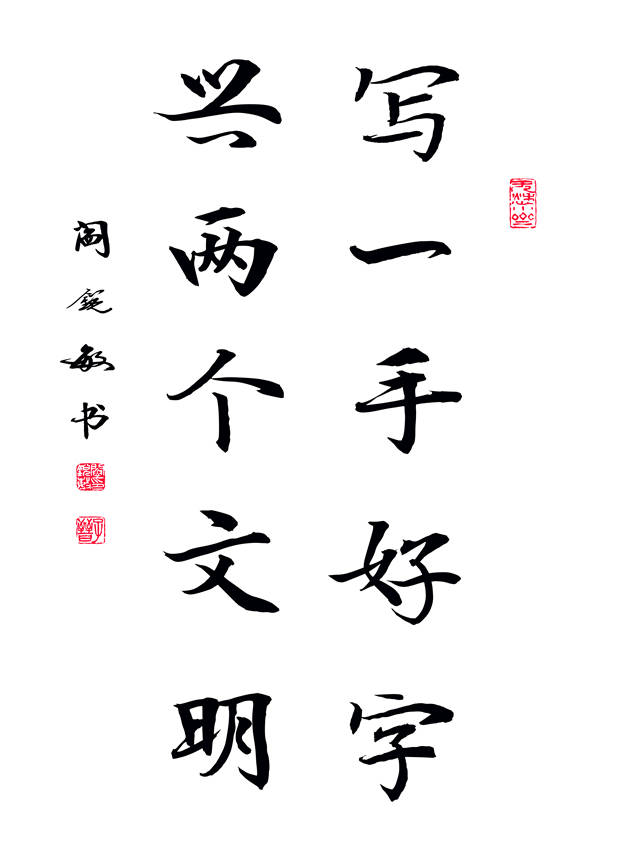 写一手好字
兴两个文明
阎锐敏书